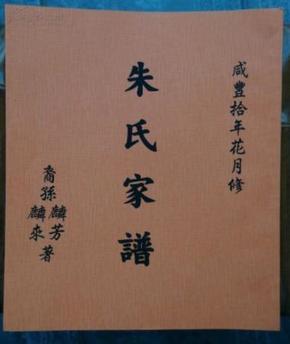 咸豐拾年花月修
朱氏家譜
裔孫麟芳
麟來著